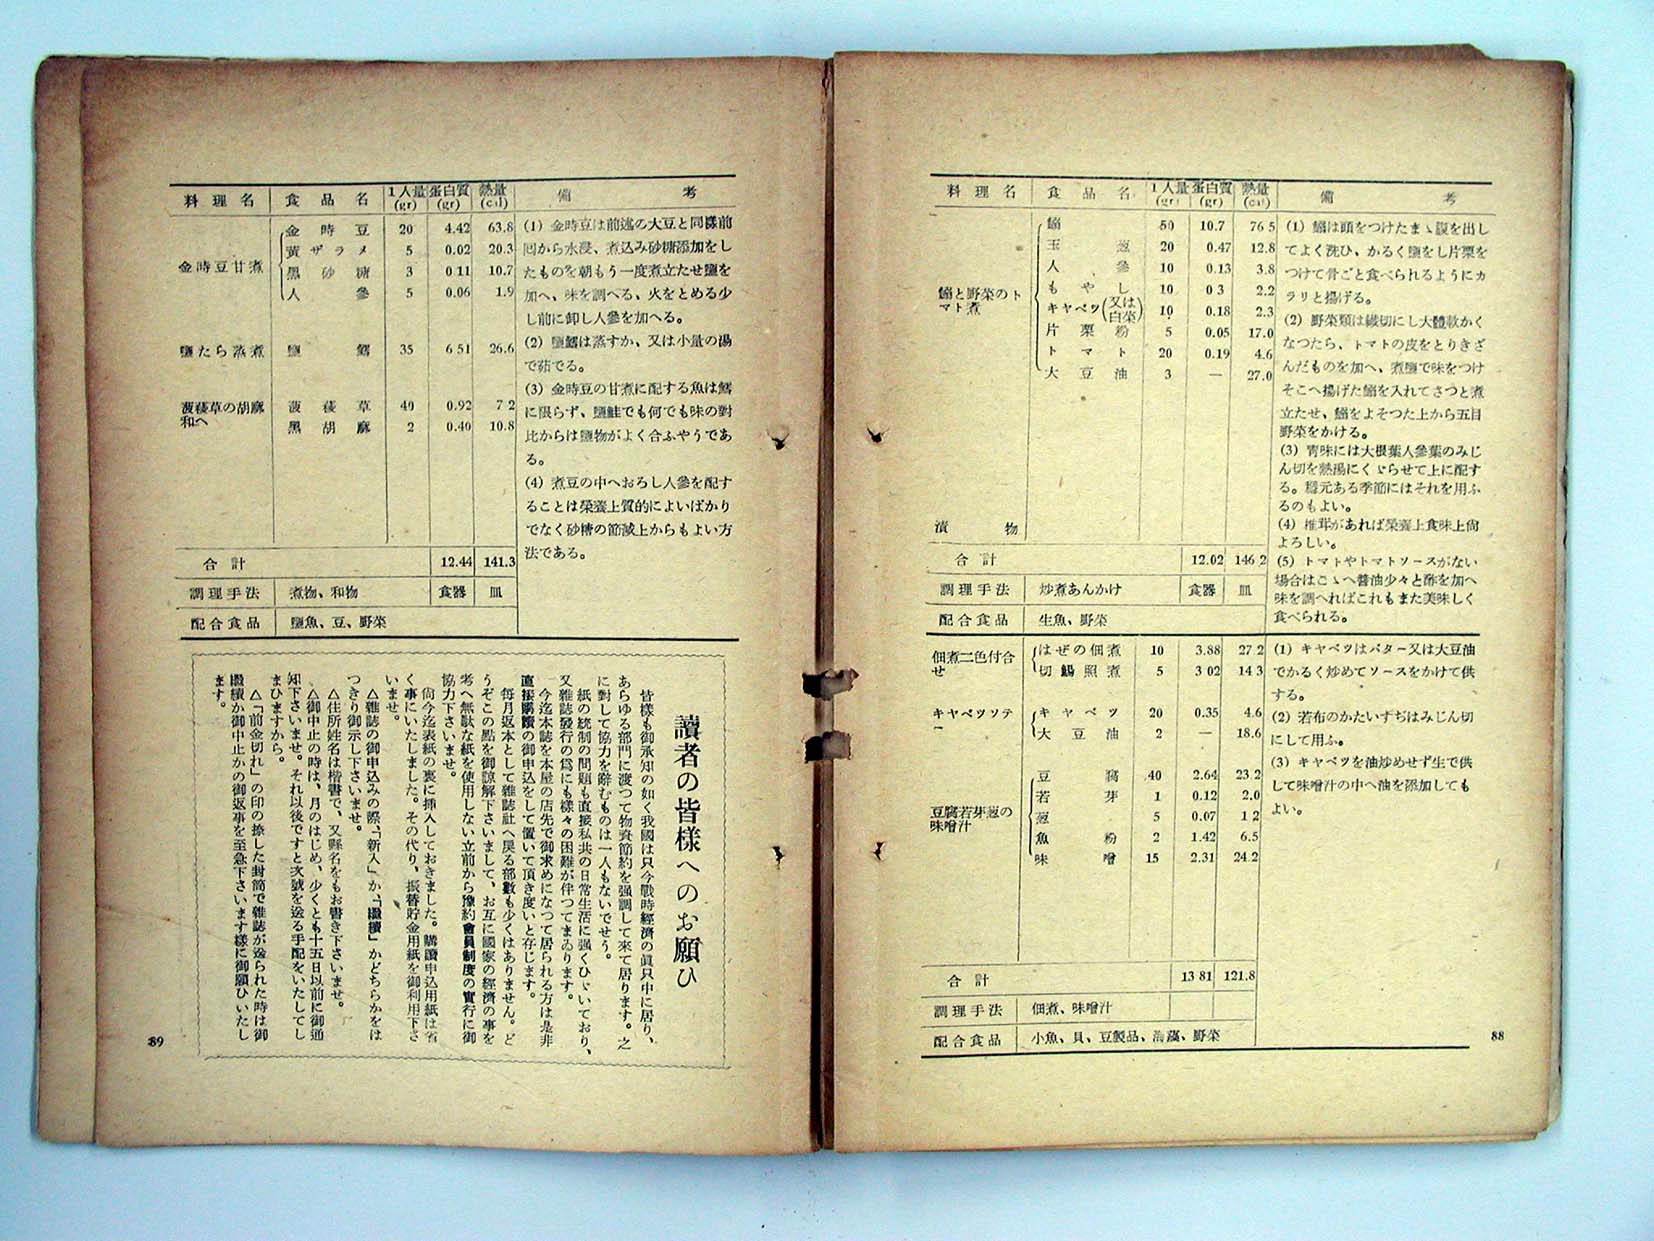 料理名 食品名 1人量(gr) 蛋白質(gr) 熱量(cal) 備考
鰯と野菜のトマト煮
鰯 50 10.7 76.5
玉葱 20 0.47 12.8
人參 10 0.13 3.8
もやし 10 0.3 2.2
キャベツ(又は白菜) 10 0.18 2.3
片栗粉 5 0.05 17.0
トマト 20 0.19 4.6
大豆油 3 — 27.0
漬物
合計 12.02 146.2
調理手法 炒煮あんかけ 食器 皿
配合食品 生魚、野菜
(1) 鰯は頭をつけたまゝ腹を出し
てよく洗ひ、かるく鹽をし片栗を
つけて骨ごと食べられるようにカ
ラリと揚げる。
(2) 野菜類は纎切にし大體軟かく
なつたら、トマトの皮をとりきざ
んだものを加へ、煮鹽で味をつけ
そこへ揚げた鰯を入れてさつと煮
立たせ、鰯をよそつた上から五目
野菜をかける。
(3) 靑味には大根葉人參葉のみじ
ん切を熱湯にくゞらせて上に配す
る。隱元ある季節にはそれを用ふ
るのもよい。
(4) 椎茸があれば榮養上食味上尙
よろしい。
(5) トマトやトマトソースがない
場合はこゝへ醬油少々と酢を加へ
味を調へればこれもまた美味しく
食べられる。
佃煮二色付合せ
はぜの佃煮 10 3.88 27.2
切鯣照煮 5 3.02 14.3
キャベツソテー
キャベツ 20 0.35 4.6
大豆油 2 — 18.6
豆腐若芽葱の味噌汁
豆腐 40 2.64 23.2
若芽 1 0.12 2.0
葱 5 0.07 1.2
魚粉 2 1.42 6.5
味噌 15 2.31 24.2
合計 13.81 121.8
調理手法 佃煮、味噌汁
配合食品 小魚、貝、豆製品、海藻、野菜
(1) キャベツはバター又は大豆油
でかるく炒めてソースをかけて供
する。
(2) 若布のかたいすぢはみじん切
にして用ふ。
(3) キャベツを油炒めせず生で供
して味噌汁の中へ油を添加しても
よい。
88
料理名 食品名 1人量(gr) 蛋白質(gr) 熱量(cal) 備考
金時豆甘煮
金時豆 20 4.42 63.8
黃ザラメ 5 0.02 20.3
黑砂糖 3 0.11 10.7
人參 5 0.06 1.9
鹽たら蒸煮
鹽鱈 35 6.51 26.6
菠薐草の胡麻和へ
菠薐草 40 0.92 7.2
黑胡麻 2 0.40 10.8
合計 12.44 141.3
調理手法 煮物、和物 食器 皿
配合食品 鹽魚、豆、野菜
(1) 金時豆は前述の大豆と同樣前
囘から水浸、煮込み砂糖添加をし
たものを朝もう一度煮立たせ鹽を
加へ、味を調べる、火をとめる少
し前に卸し人參を加へる。
(2) 鹽鱈は蒸すか、又は小量の湯
で茹でる。
(3) 金時豆の甘煮に配する魚は鱈
に限らず、鹽鮭でも何でも味の對
比からは鹽物がよく合ふやうであ
る。
(4) 煮豆の中へおろし人參を配す
ることは榮養上質的によいばかり
でなく砂糖の節減上からもよい方
法である。
讀者の皆樣へのお願ひ
皆樣も御承知の如く我國は只今戰時經濟の眞只中に居り、
あらゆる部門に渡つて物資節約を强調して來て居ります。之
に對して協力を辭むものは一人もないでせう。
紙の統制の問題も直接私共の日常生活に强くひゞいており、
又雜誌發行の爲にも樣々の困難が伴つてまゐります。
今迄本誌を本屋の店先で御求めになつて居られる方は是非
直接購讀の御申込をして置いて頂き度いと存じます。
每月返本として雜誌社へ戾る部數も少くはありません。ど
うぞこの點を御諒解下さいまして、お互に國家の經濟の事を
考へ無駄な紙を使用しない立前から豫約會員制度の實行に御
協力下さいませ。
尙今迄表紙の裏に插入しておきました。購讀申込用紙は省
く事にいたしました。その代り、振替貯金用紙を御利用下さ
いませ。
△雜誌の御申込みの際、「新入」か、「繼續」かどちらかをは
つきり御示し下さいませ。
△住所姓名は楷書で、又縣名をもお書き下さいませ。
△御中止の時は、月のはじめ、少くとも十五日以前に御通
知下さいませ。それ以後ですと次號を送る手配をいたしてし
まひますから。
△「前金切れ」の印の捺した封筒で雜誌が送られた時は御
繼續か御中止かの御返事を至急下さいます樣に御願ひいたし
ます。
89